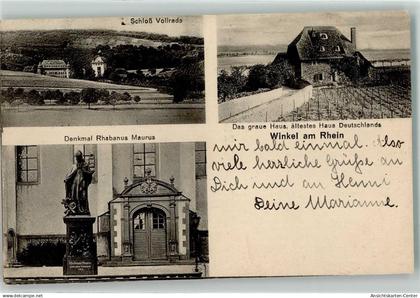 Schloß Vollrads
Das graue Haus, ältestes Haus Deutschlands
Denkmal Rhabanus Maurus
Winkel am Rhein
mir bald einmal. Also
viele herzliche Grüße an
Dich und an Henni
Deine Marianne.
www.ansichtskarten-center.de
Ansichtskarten-Center